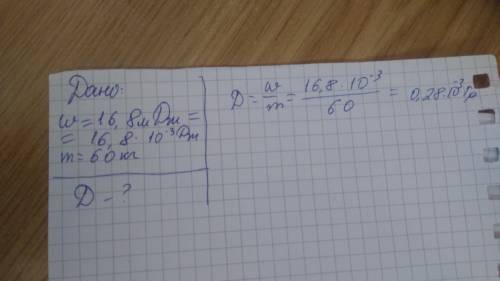 Дано:
w = 16,8мДж =
= 16,8 · 10⁻³Дж
m = 60 кг
D - ?
D = w/m = 16,8 · 10⁻³/60 = 0,28·10⁻³Гр